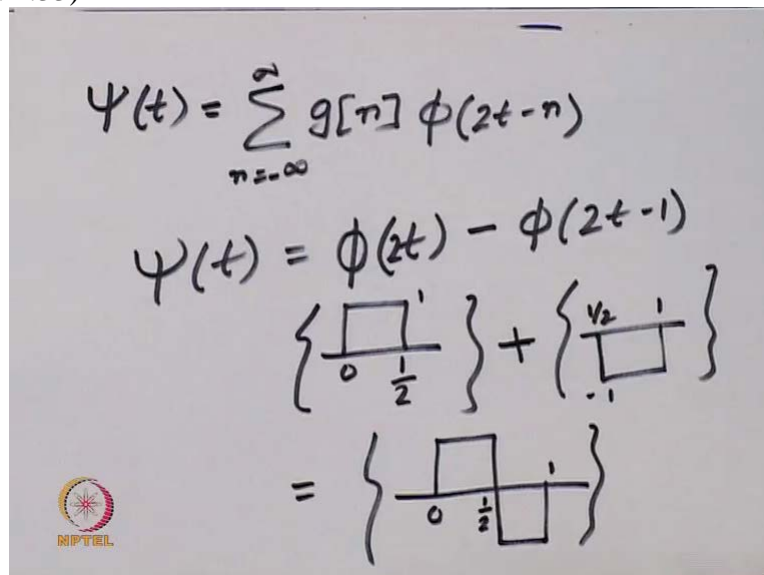 ψ(t) = ∞ Σ n=-∞ g[n] φ(2t-n)
ψ(t) = φ(2t) - φ(2t-1)
{ 1 0 1/2 } + { 1/2 1 -1 }
= { 0 1/2 1 }
NPTEL